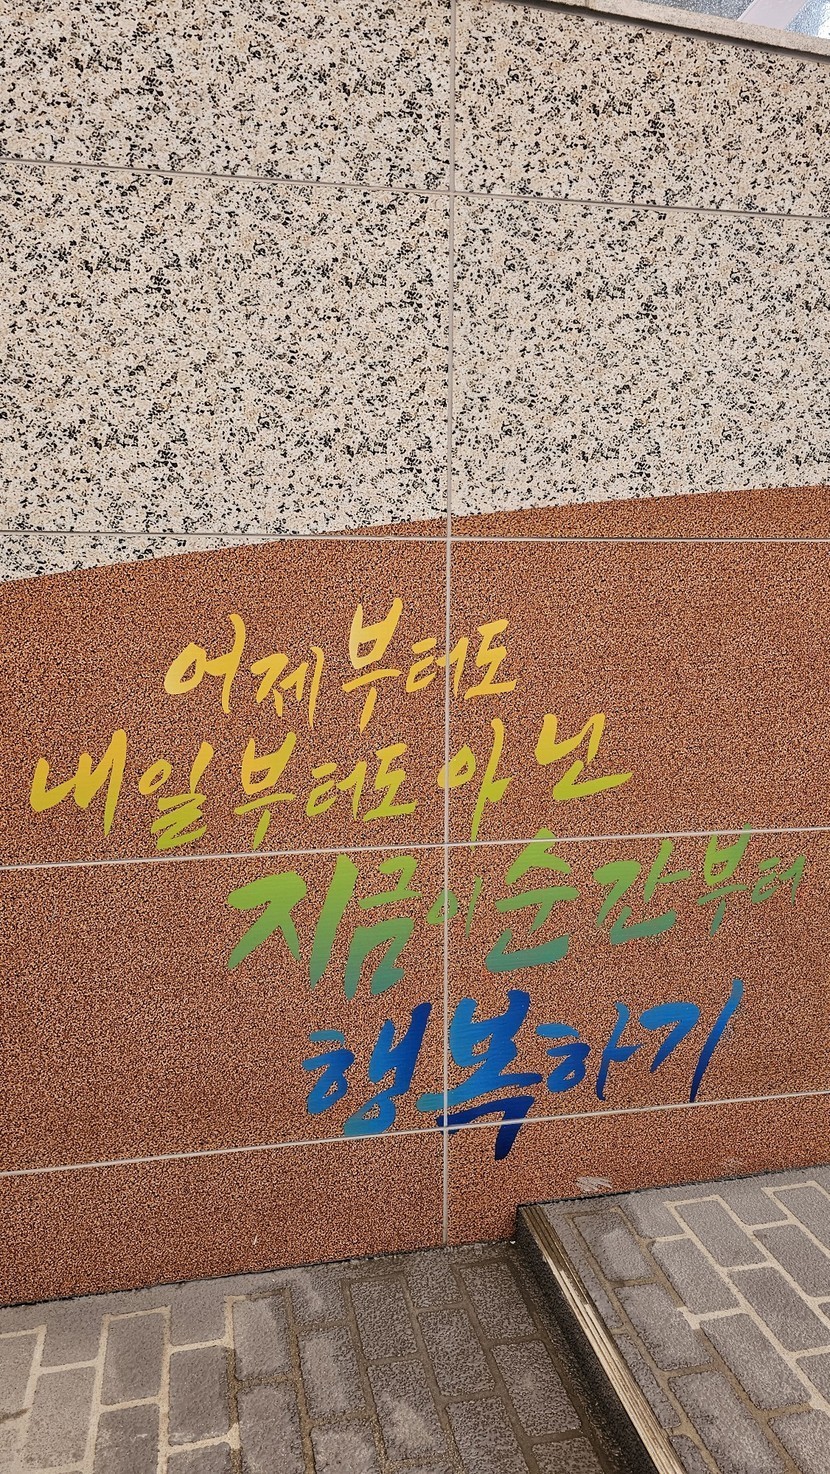 어제부터도
내일부터도 아닌
지금 이 순간부터
행복하기